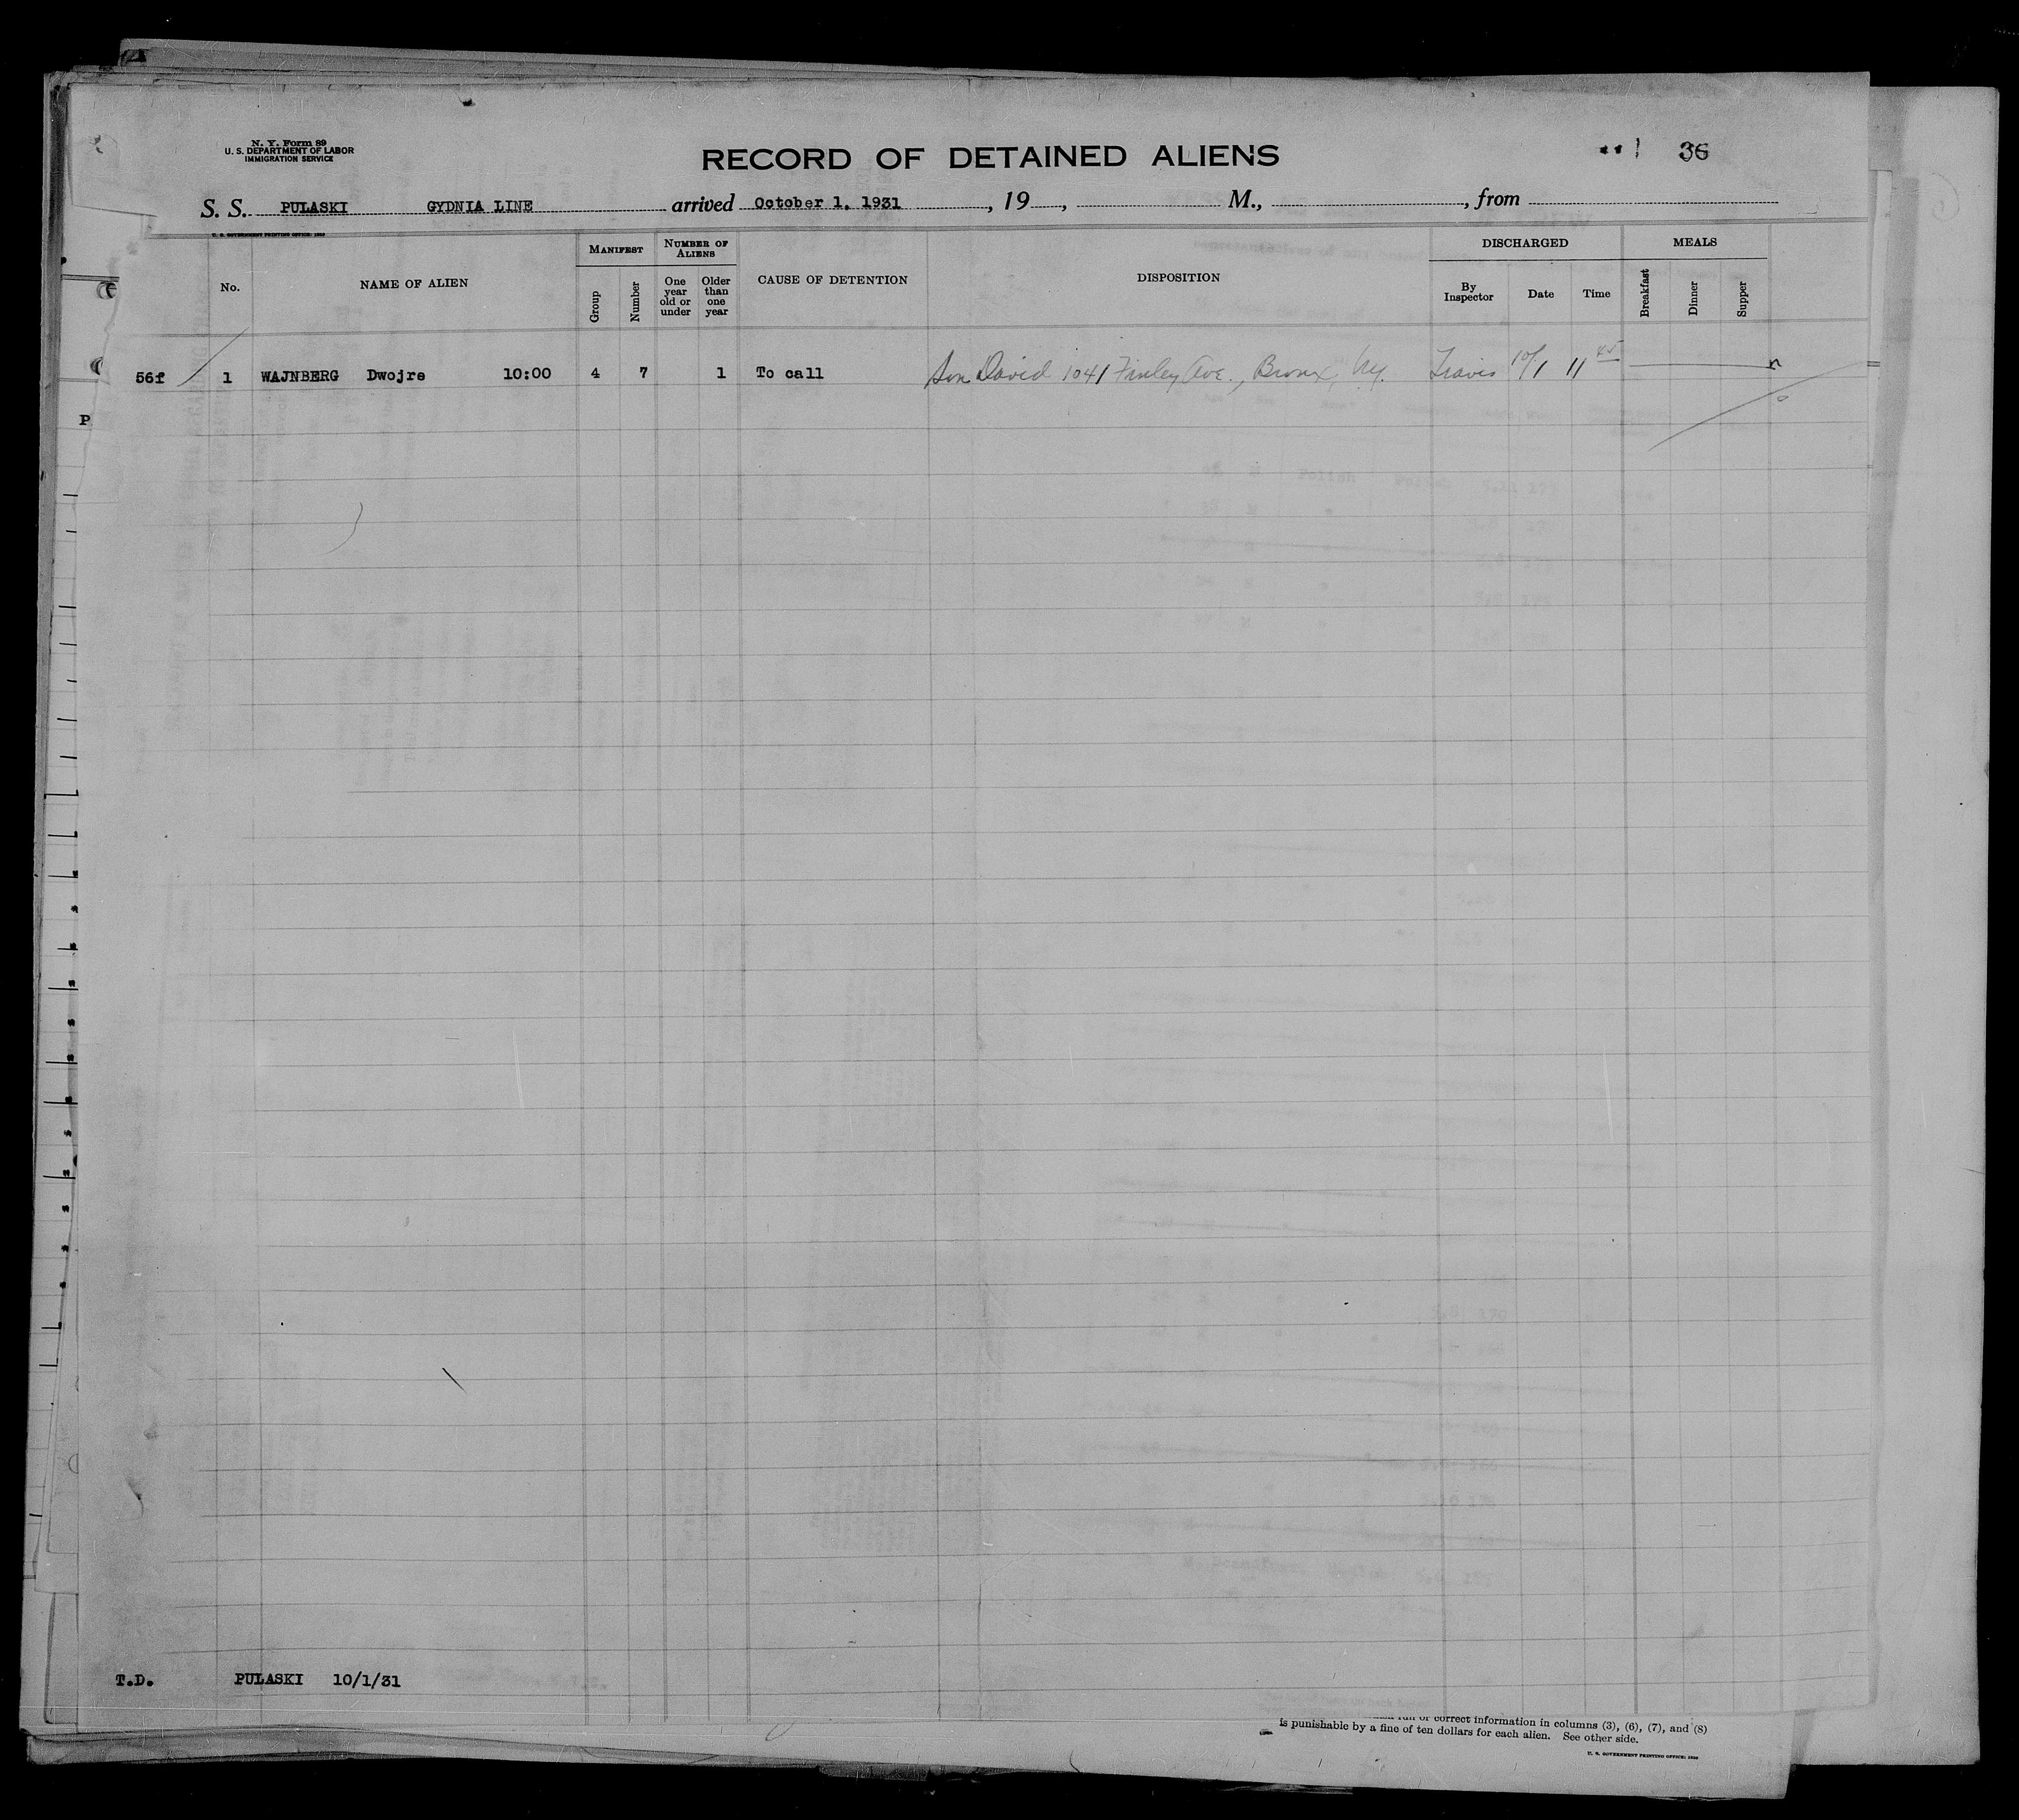 N. Y. Form 89
U. S. DEPARTMENT OF LABOR
IMMIGRATION SERVICE
RECORD OF DETAINED ALIENS
36
S. S. PULASKI GYDNIA LINE arrived October 1, 1931, 19, M., from
U. S. GOVERNMENT PRINTING OFFICE:
No.
NAME OF ALIEN
MANIFEST
Group
Number
NUMBER OF ALIENS
One year old or under
Older than one year
CAUSE OF DETENTION
DISPOSITION
DISCHARGED
By Inspector
Date
Time
MEALS
Breakfast
Dinner
Supper
56f 1 WAJNBERG Dwojre 10:00 4 7 1 To call Son David 1041 Finley Ave., Bronx, Ny. Travis 10/1 11 45 n
P
T.D. PULASKI 10/1/31
correct information in columns (3), (6), (7), and (8)
is punishable by a fine of ten dollars for each alien. See other side.
U. S. GOVERNMENT PRINTING OFFICE: